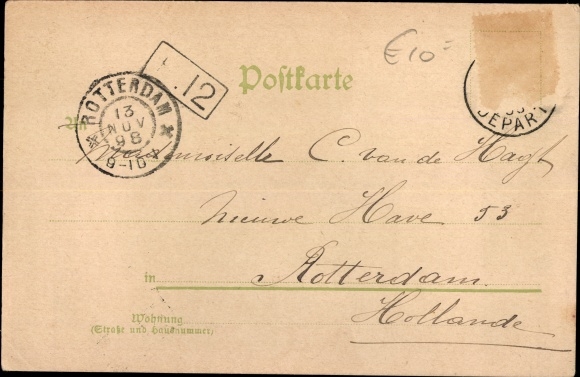 €10=
.12
Postkarte
ROTTERDAM
13
NOV
98
9-10V
DEPART
An
Mademoiselle C. van de Hagt
Nieuwe Have 53
in Rotterdam.
Hollande
Wohnung
(Straße und Hausnummer)